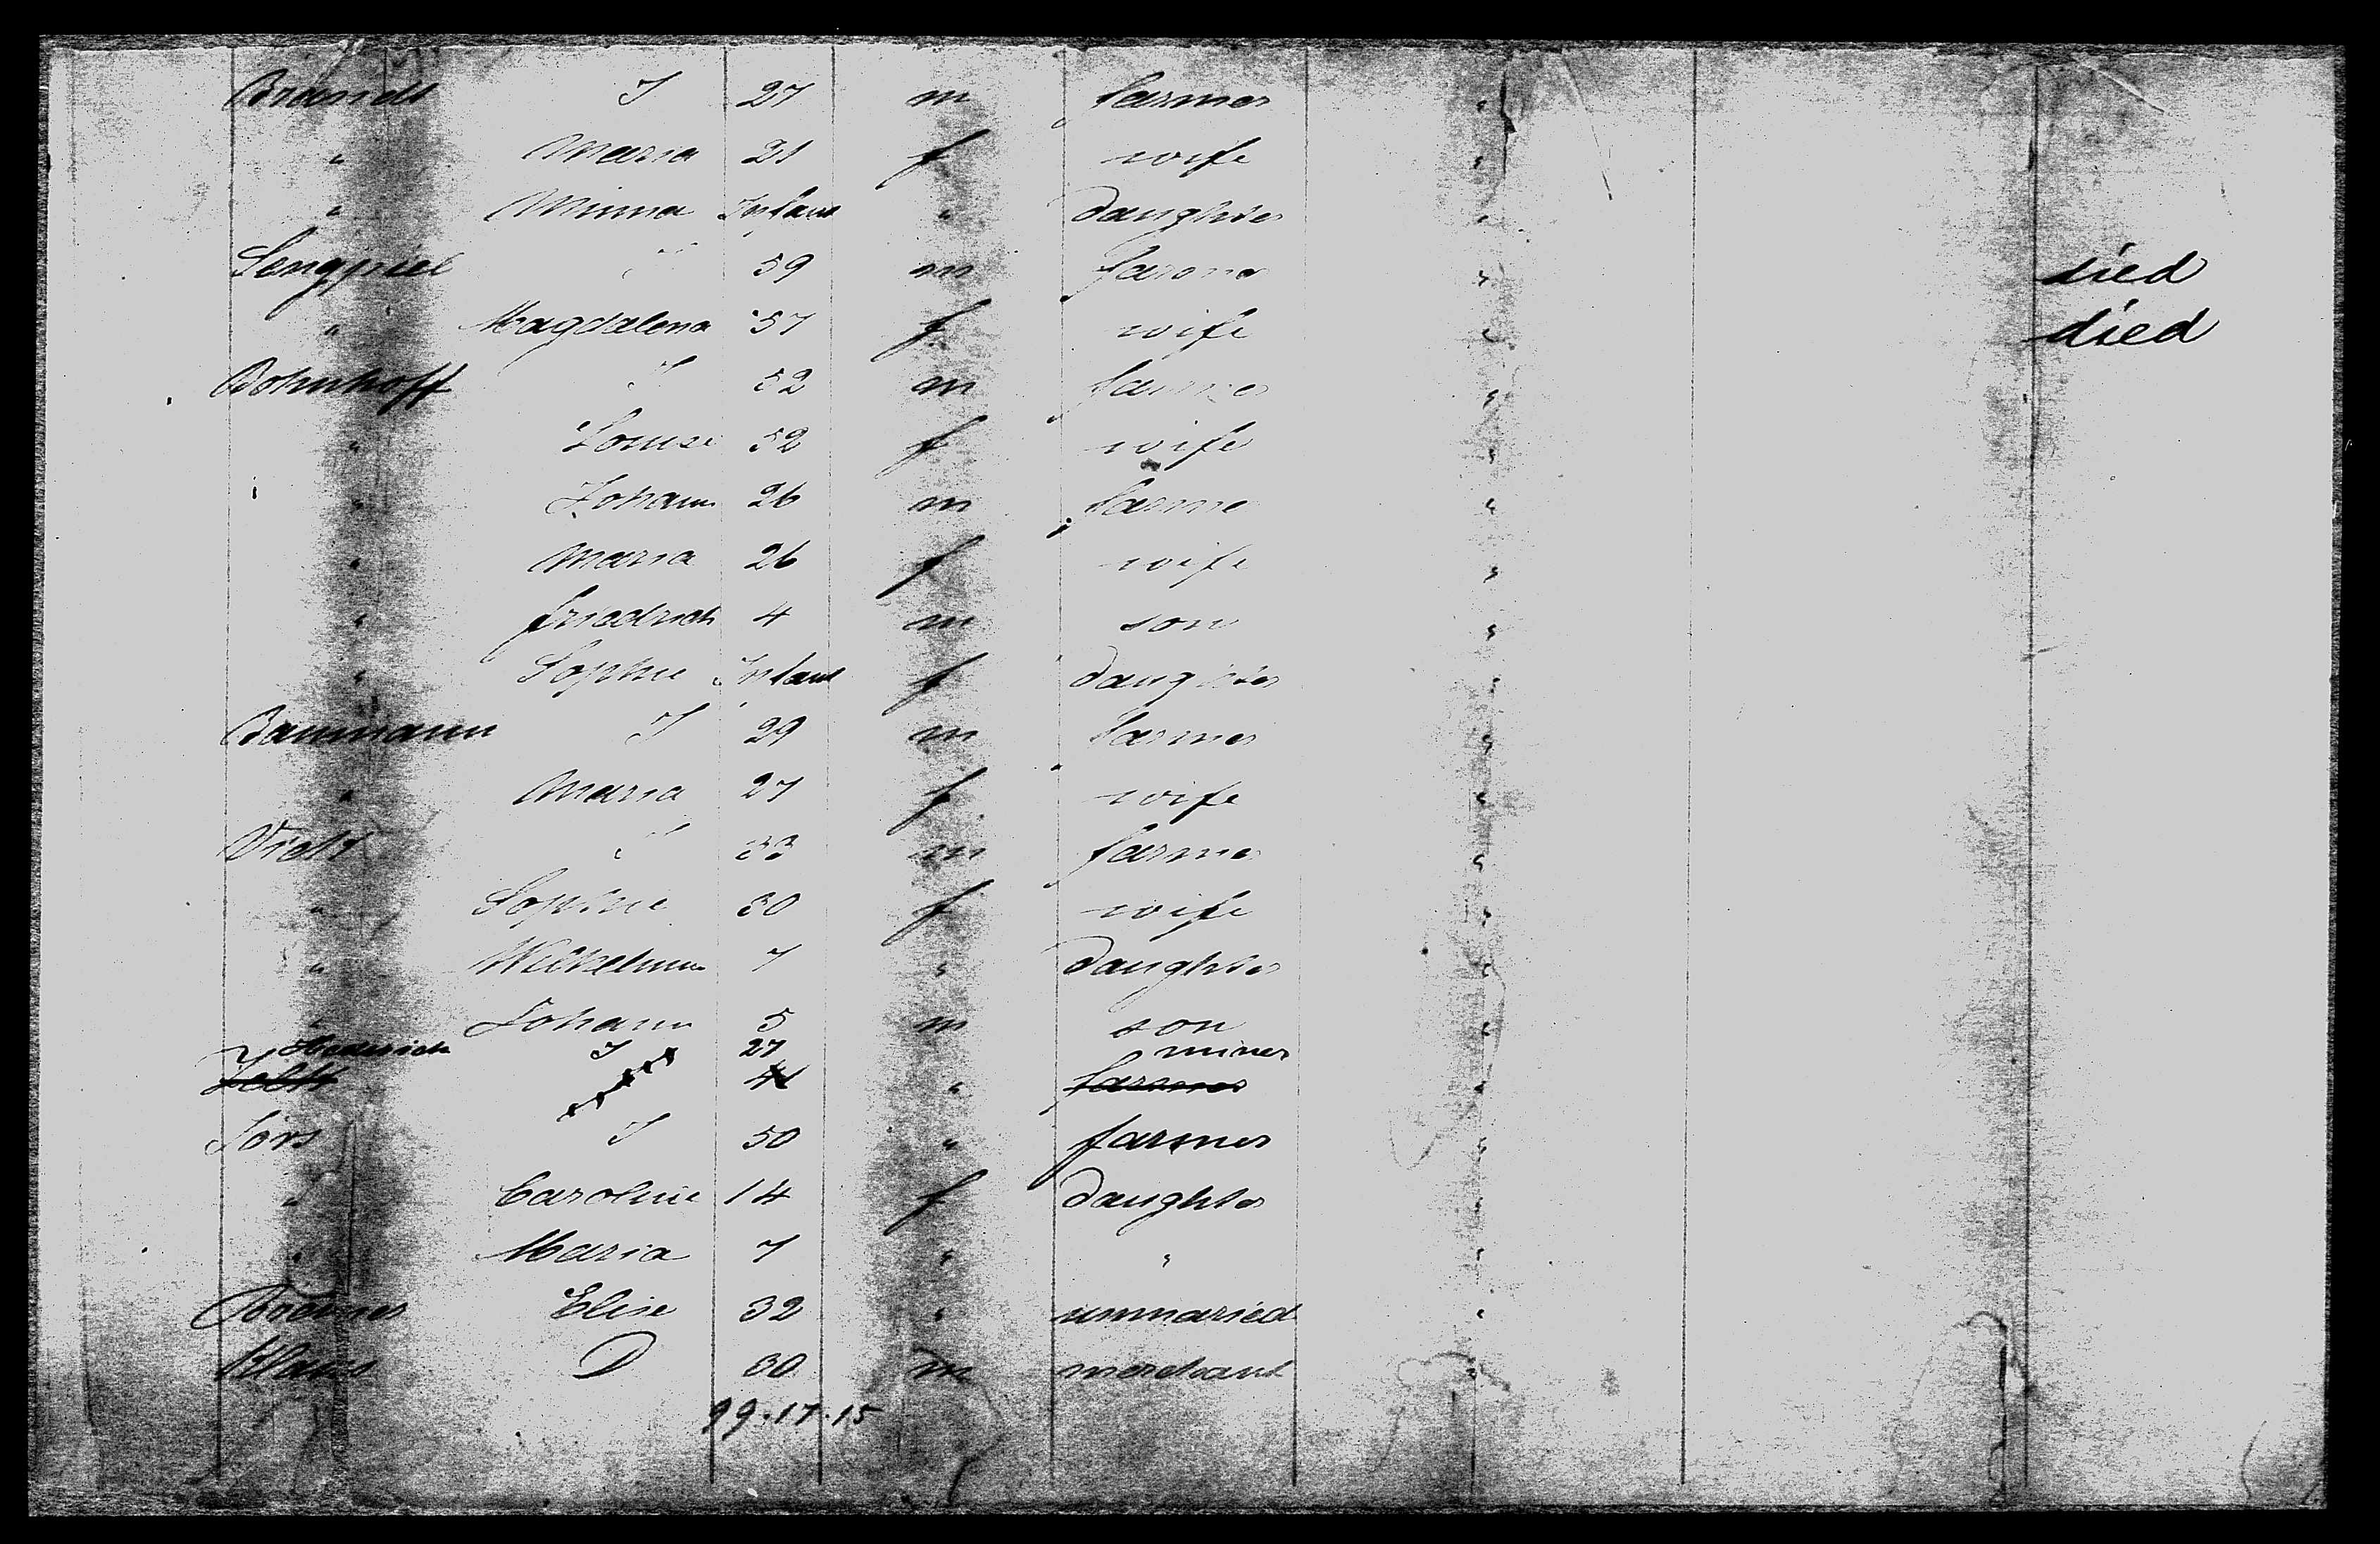 Brandt J 27 m farmer "
" Maria 21 f wife "
" Minna Infant " daughter "
Sengpiel J 59 m farmer " died
" Magdalena 57 f wife " died
Bohnhoff J 52 m farmer "
" Louise 52 f wife "
" Johann 26 m farmer "
" Maria 26 f wife "
" Friedrich 4 m son "
" Sophie Infant f daughter "
Baumann J 29 m farmer "
" Maria 27 f wife "
J 33 m farmer "
" Sophie 30 f wife "
" Wilhelmine 7 " daughter "
" Johann 5 m son "
J 27 miner
41 " farmer "
J 50 " farmer "
" Caroline 14 f daughter "
" Maria 7 " " "
Elise 32 " unmaried "
D 30 m merchant "
99.17.15